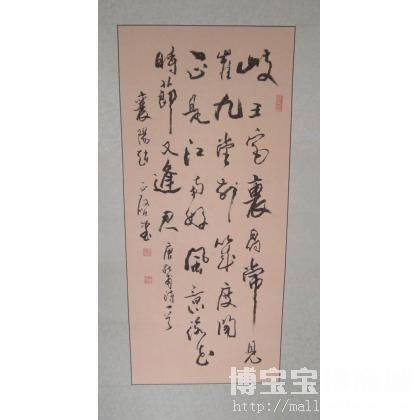 岐王宅裏尋常見
崔九堂前幾度聞
正是江南好風景落花
時節又逢君 唐杜甫詩一首
襄陽趙 書
博宝
http://mall